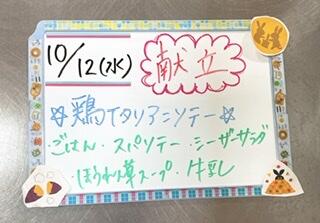 10/12(水)
献立
☆鶏イタリアンソテー☆
・ごはん・スパソテー・シーザーサラダ
・ほうれん草スープ・牛乳